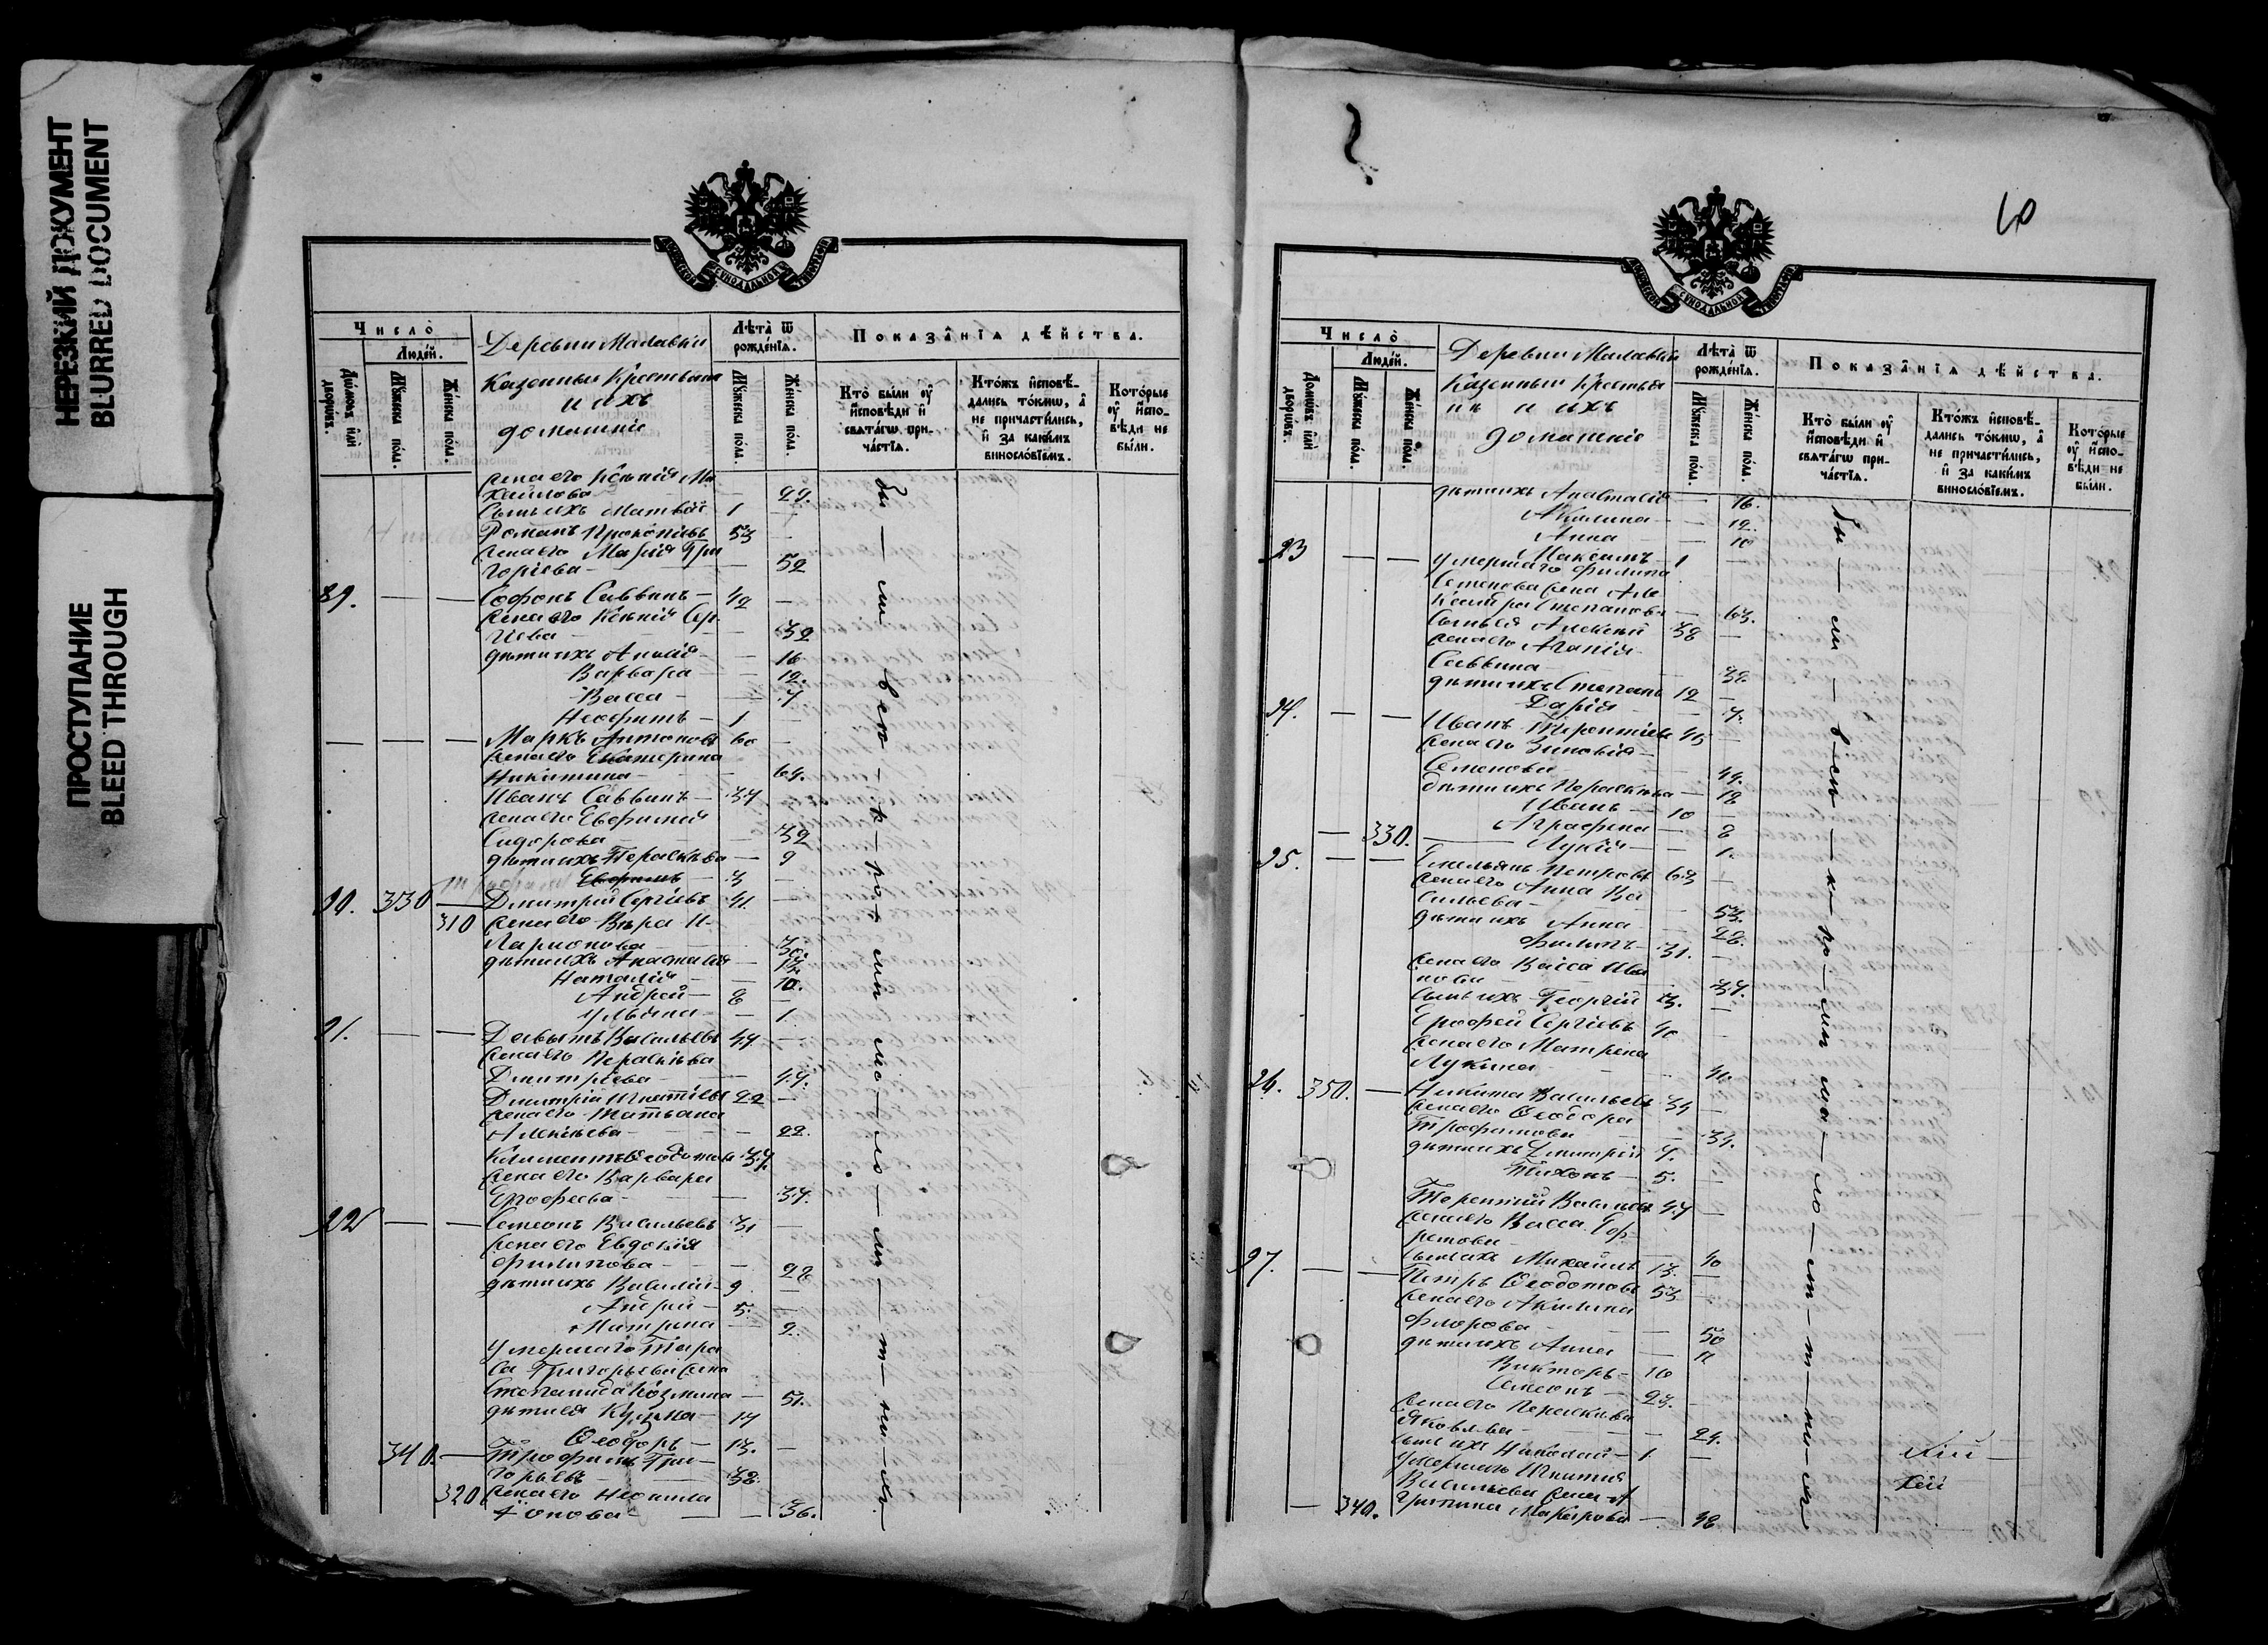 НЕРЕЗКИЙ ДОКУМЕНТ
BLURRED DOCUMENT
ПРОСТУПАНИЕ
BLEED THROUGH
МОСКОВСКОЙ СѴНОДАЛЬНОЙ ТИПОГРАФІИ
Число̀
Люде́й.
Домѡвъ и҆лѝ дворѡ́въ.
Мꙋ́жеска по́ла.
Же́нска по́ла.
Деревни Малавки
Казенныи Крестьяне
и ихъ
домашніе
Лѣта̀ ѿ рожде́нїѧ.
Мꙋ́жеска по́ла.
Же́нска по́ла.
Показа̑нїѧ дѣ́йства.
Кто̀ бы́ли ᲂу҆ и҆сповѣди и҆ свѧта́гѡ при- ча́стїѧ.
Кто́жъ и҆сповѣ́- дались то́кмѡ, а҆ не причасти́лись, и҆ за каки́мъ винословїемъ.
Кото́рые ᲂу҆ и҆спо- вѣди не бы́ли.
жена его Ксенія Ми
хаилова 29.
Сынъ ихъ Матвѣй 1
Романъ Прокопіевъ 53
жена его Марія Гри
горіева 52
89. Софонъ Саввинъ 42
жена его Ксенія Сер
гіева 32
дѣти ихъ 16
Варвара 12.
Васса 7
Неофитъ 1
Маркъ Антоновъ 60
жена его Екатерина
Никитина 64.
Иванъ Саввинъ 37
жена его Евфимія
Сидорова 32
дѣти ихъ Параскева 9
3
90. 330 Дмитрій Сергіевъ 41.
310 жена его Вѣра И
ларионова 30.
дѣти ихъ Анастасія 13.
Наталія 10.
Андрей 8
Ульяна 1
91. Давыдъ Васильевъ 47
жена его Параскева
Дмитріева 47.
Дмитрій Игнатіевъ 22
жена его Татьяна
Алексѣева 22.
Климентъ Ѳеодотовъ 37.
жена его Варвара
Ерофеева 37.
92 Семенъ Васильевъ 31
жена его Евдокія
Филипова 28
дѣти ихъ Василій 9
Андрей 5.
Матрена 2.
умершаго Тара
са Григорьева жена
Степанида Козмина 51.
дѣти ея Кузьма 17
Ѳеодоръ 13.
340. Трофимъ Гри
горьевъ 38.
320 жена его Неонила
Іонова 36.
бы — ли в сею — к — ро — ми мо — ло — ли — т — ни — хъ
10
МОСКОВСКОЙ СѴНОДАЛЬНОЙ ТИПОГРАФІИ
Число̀
Люде́й.
Домѡвъ и҆лѝ дворѡ́въ.
Мꙋ́жеска по́ла.
Же́нска по́ла.
Деревни Малавки
Казенныи Крестья
не и ихъ
домашніе
Лѣта̀ ѿ рожде́нїѧ.
Мꙋ́жеска по́ла.
Же́нска по́ла.
Показа̑нїѧ дѣ́йства.
Кто̀ бы́ли ᲂу҆ и҆сповѣди и҆ свѧта́гѡ при- ча́стїѧ.
Кто́жъ и҆сповѣ́- дались то́кмѡ, а҆ не причасти́лись, и҆ за каки́мъ винословїемъ.
Кото́рые ᲂу҆ и҆спо- вѣди не бы́ли.
дѣти ихъ Анастасія 16.
Акилина 12.
Анна 10
Максимъ 1
23 умершаго Филипа
Семенова жена Але
ксандра Степанова 63.
Сынъ ея Алексѣй 38
жена его Агапія
Саввина 38.
дѣти ихъ Степанъ 12
Дарія 7.
94. Иванъ Терентіевъ 45
жена его Зиновія
Семенова 44.
дѣти ихъ Параскева 18
Иванъ 10
Аграфена 8
330. Лукія 1.
95. Емельянъ Петровъ 63
жена его Анна Ва
сильева 53.
дѣти ихъ Анна 28.
Филипъ 31.
жена его Васса Ива
нова 37.
сынъ ихъ Георгій 3.
Ерофей Сергіевъ 40
жена его Матрена
Лукина 41.
96. 350. Никита Васильевъ 34
жена его Ѳеодора
Трофимова 34.
дѣти ихъ Дмитрій 7.
Тихонъ 5.
Терентій Васильевъ 47
жена его Васса
40
сынъ ихъ Михаилъ 13.
97. Петръ Ѳеодотовъ 53
жена его Акилина
Флорова 50
дѣти ихъ Анна 11
Викторъ 16
Симеонъ 23.
жена его Параскева
Яковлева 24.
сынъ ихъ Николай 1
умершаго Игнатія
Васильева жена А
340. грипина Макарова 48
бы — ли — в сею — к — ро — ми мо — ло —